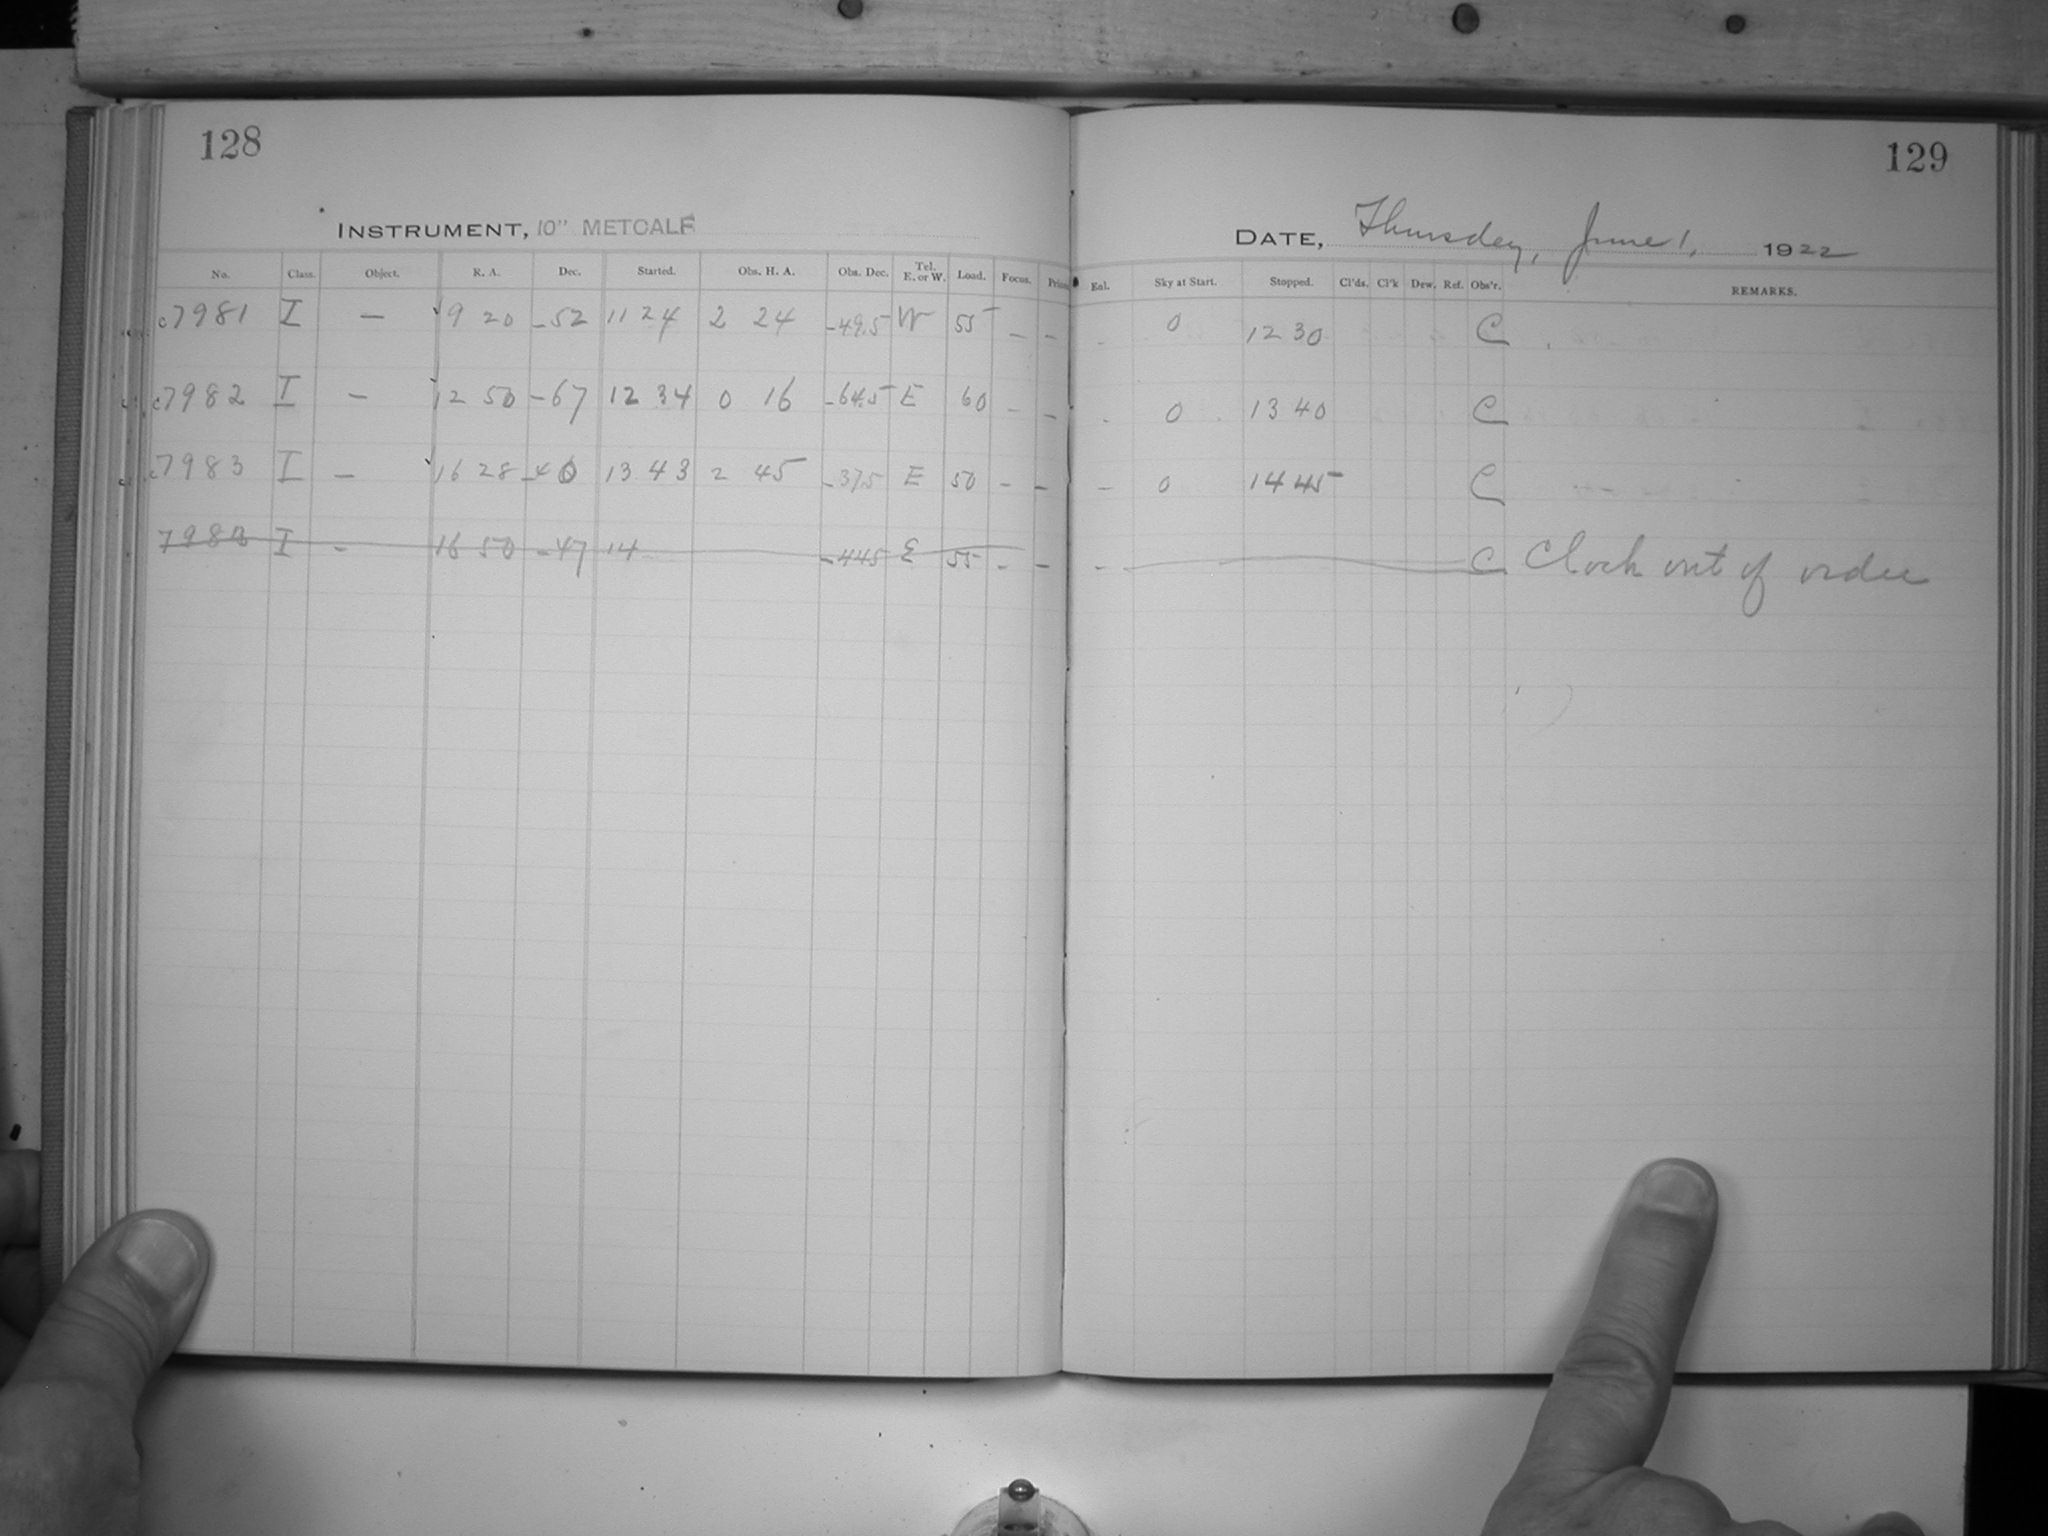 128
129
INSTRUMENT, 10" METCALF
DATE, Thursday, June 1, 1922
No. Class. Object. R. A. Dec. Started. Obs. H. A. Obs. Dec. Tel. E. or W. Load. Focus. Eal. Sky at Start. Stopped. Cl'ds. Cl'k Dew. Ref. Obs'r. REMARKS.
c7981 I — 9 20 -52 11 24 2 24 -49.5 W 55 - - - 0 12 30 C
c7982 I — 12 50 -67 12 34 0 16 -64.5 E 60 - - - 0 13 40 C
c7983 I — 16 28 -40 13 43 2 45 -37.5 E 50 - - - 0 14 45 C
I - 16 50 -47 14 -44.5 E 55 - - - C Clock out of order